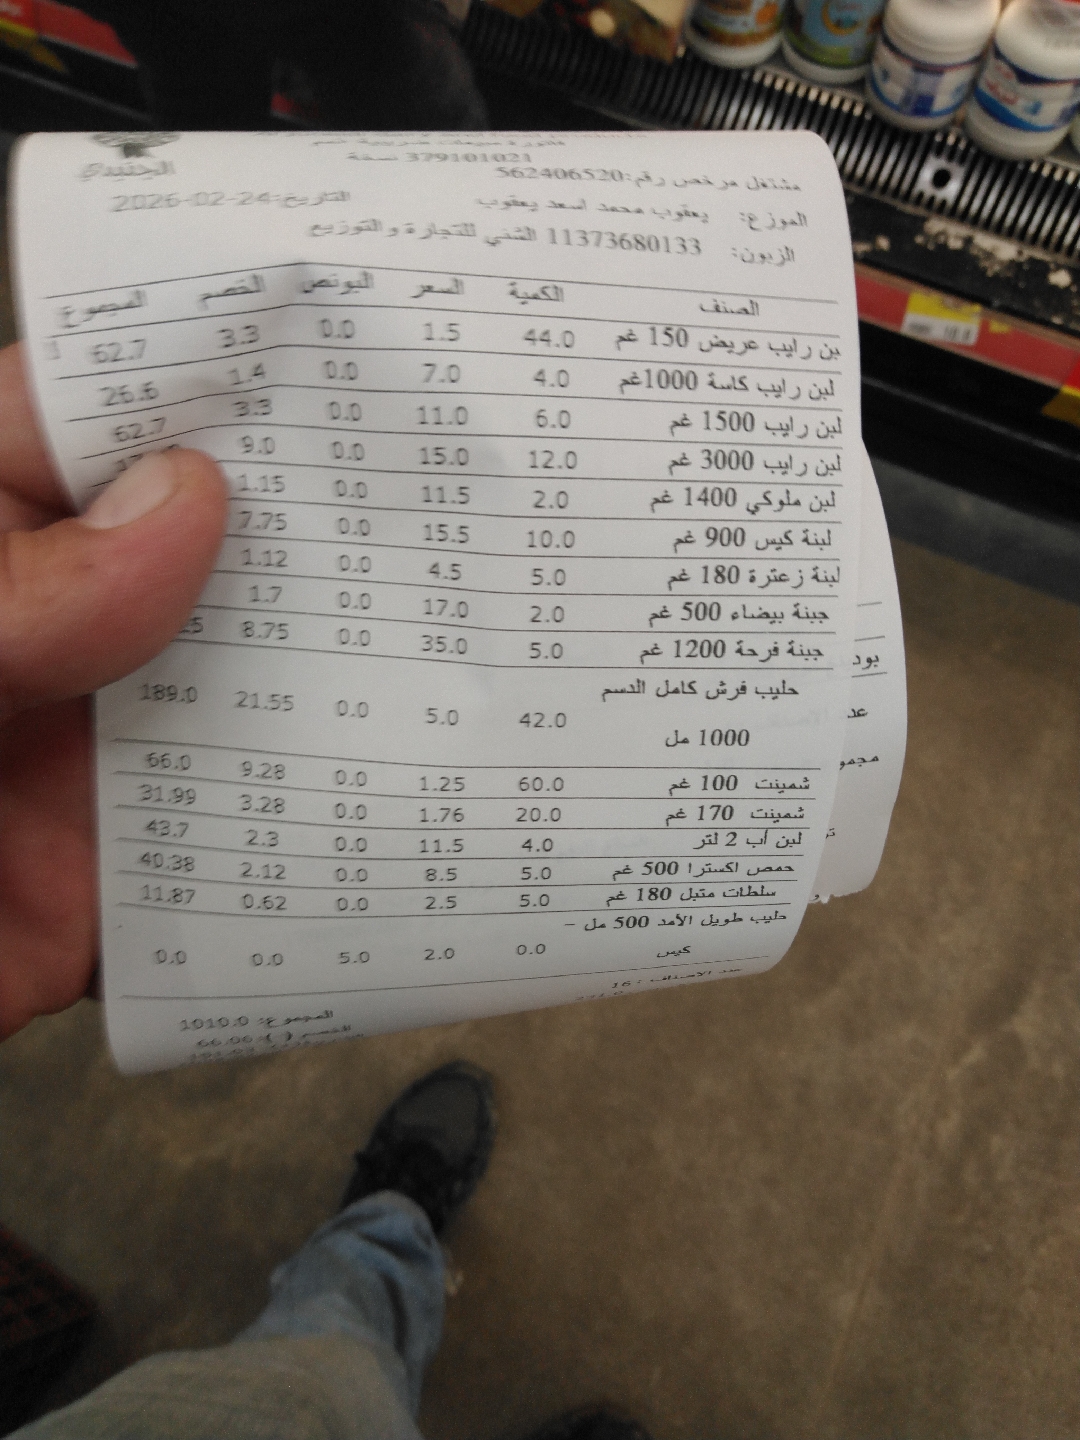 الجنيدي
379101021 نسخة
مشتغل مرخص رقم:562406520
الموزع: يعقوب محمد اسعد يعقوب التاريخ:2026-02-24
الزبون: 11373680133 الشني للتجارة والتوزيع
الصنف الكمية السعر البونص الخصم المجموع
بن رايب عريض 150 غم 44.0 1.5 0.0 3.3 62.7
لبن رايب كاسة 1000غم 4.0 7.0 0.0 1.4 26.6
لبن رايب 1500 غم 6.0 11.0 0.0 3.3 62.7
لبن رايب 3000 غم 12.0 15.0 0.0 9.0
لبن ملوكي 1400 غم 2.0 11.5 0.0 1.15
لبنة كيس 900 غم 10.0 15.5 0.0 7.75
لبنة زعترة 180 غم 5.0 4.5 0.0 1.12
جبنة بيضاء 500 غم 2.0 17.0 0.0 1.7
جبنة فرحة 1200 غم 5.0 35.0 0.0 8.75
حليب فرش كامل الدسم
1000 مل 42.0 5.0 0.0 21.55 189.0
شمينت 100 غم 60.0 1.25 0.0 9.28 66.0
شمينت 170 غم 20.0 1.76 0.0 3.28 31.99
لبن أب 2 لتر 4.0 11.5 0.0 2.3 43.7
حمص اكسترا 500 غم 5.0 8.5 0.0 2.12 40.38
سلطات متبل 180 غم 5.0 2.5 0.0 0.62 11.87
حليب طويل الأمد 500 مل -
كيس 0.0 2.0 5.0 0.0 0.0
عدد الاصناف : 16
المجموع: 1010.0
بود
عد
مجمو